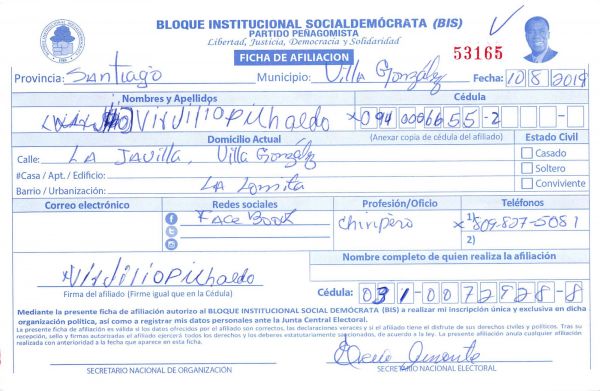 BLOQUE INSTITUCIONAL SOCIALDEMÓCRATA (BIS)
PARTIDO PEÑAGOMISTA
Libertad, Justicia, Democracia y Solidaridad
FICHA DE AFILIACION
53165
Provincia: Santiago Municipio: Villa González Fecha: 10/8/2019
Nombres y Apellidos Cédula
Virjilio Pichaldo 094 0006655-2
Domicilio Actual (Anexar copia de cédula del afiliado) Estado Civil
Calle: LA JAVILLA, Villa González Casado
#Casa / Apt. / Edificio: Soltero
Barrio / Urbanización: LA Lomita Conviviente
Correo electrónico Redes sociales Profesión/Oficio Teléfonos
Face Book chiripero x 1) 809-827-5081
2)
Nombre completo de quien realiza la afiliación
Virjilio Pichaldo
Firma del afiliado (Firme igual que en la Cédula) Cédula: 031-0072928-8
Mediante la presente ficha de afiliación autorizo al BLOQUE INSTITUCIONAL SOCIAL DEMÓCRATA (BIS) a realizar mi inscripción única y exclusiva en dicha
organización política, así como a registrar mis datos personales ante la Junta Central Electoral.
La presente ficha de afiliación es válida si los datos ofrecidos por el afiliado son correctos, las declaraciones veraces y si el afiliado tiene el disfrute de sus derechos civiles y políticos. Tras su
recepción, sello y firmas autorizadas el afiliado ejercerá todos los derechos y los deberes estatutariamente sancionados, de acuerdo a la ley. La presente afiliación anula cualquier afiliación
realizada con anterioridad a la fecha que aparece en esta ficha.
SECRETARIO NACIONAL DE ORGANIZACIÓN SECRETARIO NACIONAL ELECTORAL